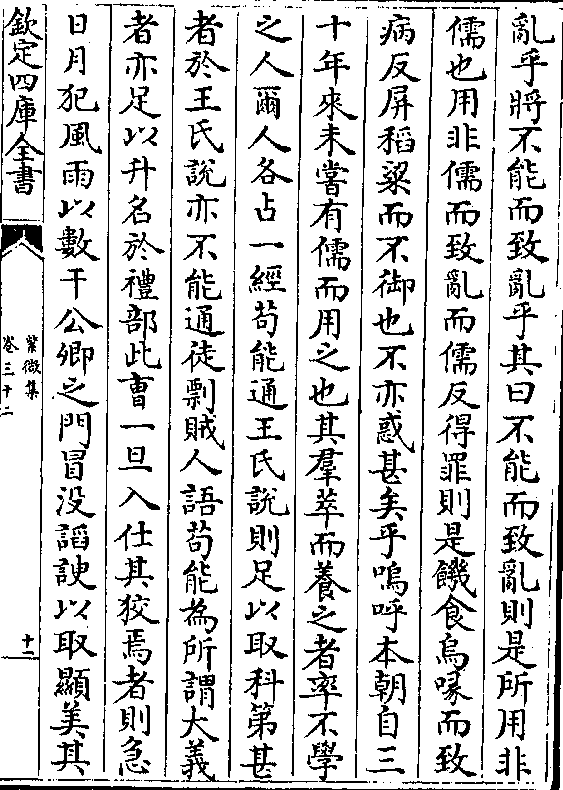 亂乎將不能而致亂乎其曰不能而致亂則是所用非
儒也用非儒而致亂而儒反得罪則是饑食烏喙而致
病反屏稻粱而不御也不亦惑甚矣乎嗚呼本朝自三
十年來未嘗有儒而用之也其羣萃而養之者率不學
之人爾人各占一經苟能通王氏說則足以取科第甚
者於王氏說亦不能通徒剽賊人語苟能為所謂大義
者亦足以升名於禮部此曹一旦入仕其狡焉者則急
日月犯風雨以數干公卿之門冒没謟諛以取顯美其
欽定四庫全書
紫微集
卷三十二
十二